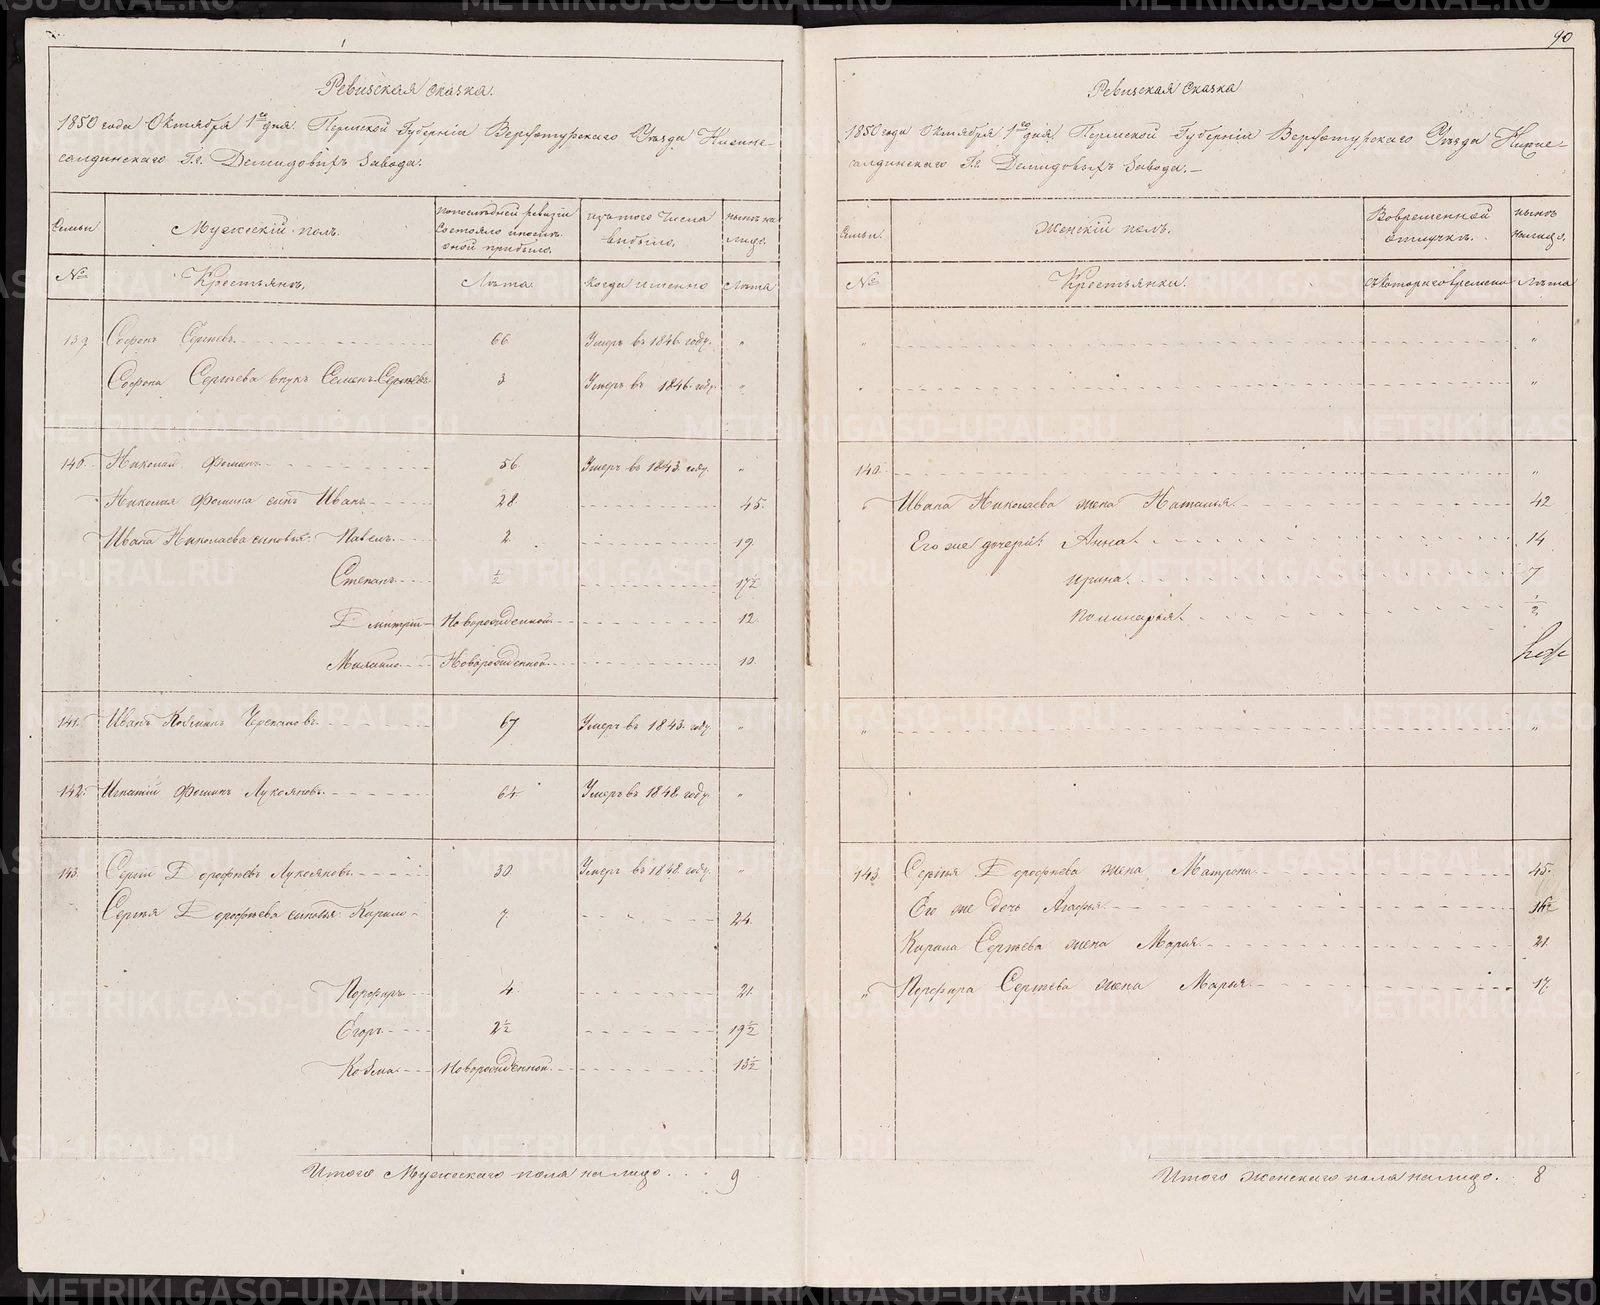 Ревизская сказка.
1850 года Октября 1го дня Пермской Губерніи Верхотурскаго Уѣзда Нижне-
салдинскаго Г.г. Демидовыхъ Завода.
Семьи
Мужескій полъ.
по последней ревизіи состояло и после оной прибыло.
изъ того числа выбыло.
нынѣ на лицо.
№
Крестьянъ.
Лѣта.
когда именно
Лѣта
139 Софонъ Сергѣевъ 66 Умеръ въ 1846 году. "
Софона Сергѣева внукъ Семенъ Сергѣевъ 3 Умеръ въ 1846 году. "
140. Николай Фоминъ 56 Умеръ въ 1843 году. "
Николая Фомина сынъ Иванъ 28 45.
Ивана Николаева сыновья: Павелъ 2 19
Степанъ ½ 17½
Дмитрій Новорожденной 12.
Михайло Новорожденной 10
141. Иванъ Козминъ Черепановъ 67 Умеръ въ 1843 году. "
142. Игнатій Фоминъ Лукояновъ 64 Умеръ въ 1848 году. "
143 Сергій Дорофѣевъ Лукояновъ 30 Умеръ въ 1848 году. "
Сергѣя Дорофѣева сыновья Кирило 7. 24.
Порфиръ 4. 21.
Егоръ 2½ 19½
Козма Новорожденной 13½
Итого Мужескаго пола налицо. 9
90
Ревизская Сказка
1850 года Октября 1го дня Пермской Губерніи Верхотурскаго Уѣзда Нижне-
салдинскаго Г.г. Демидовыхъ Завода.
Семьи
Женскій полъ.
Во временной отлучкѣ.
нынѣ налицо.
№
Крестьянки.
съ котораго времени
Лѣта
" "
" "
140. "
" Ивана Николаева жена Наталья 42
Его же дочери: Анна. 14
Ирина. 7
½
" "
143 Сергѣя Дорофѣева жена Матрона 45.
Его же дочь Агафья 16½
Кирила Сергѣева жена Марья 21.
" Порфира Сергѣева жена Марья 17.
Итого Женскаго пола налицо. 8
METRIKI.GASO-URAL.RU